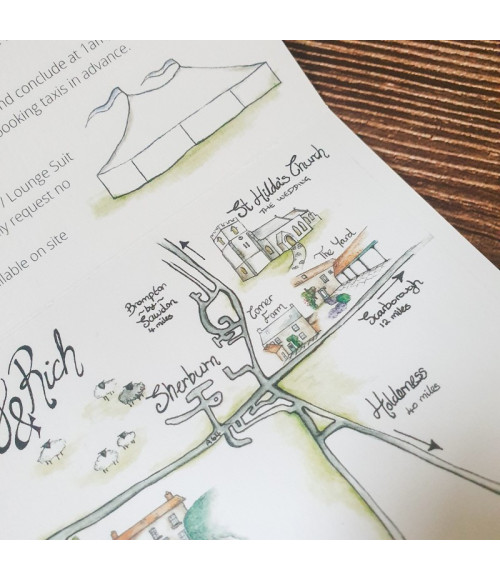 nd conclude at 1am
ooking taxis in advance.
/ Lounge Suit
y request no
ilable on site
St Hilda's Church
THE WEDDING
The Yard
Corner
Farm
Scarborough
12 miles
Brompton
~by~
Sawdon
4 miles
Sherburn
Holderness
40 miles
A64
& Rich